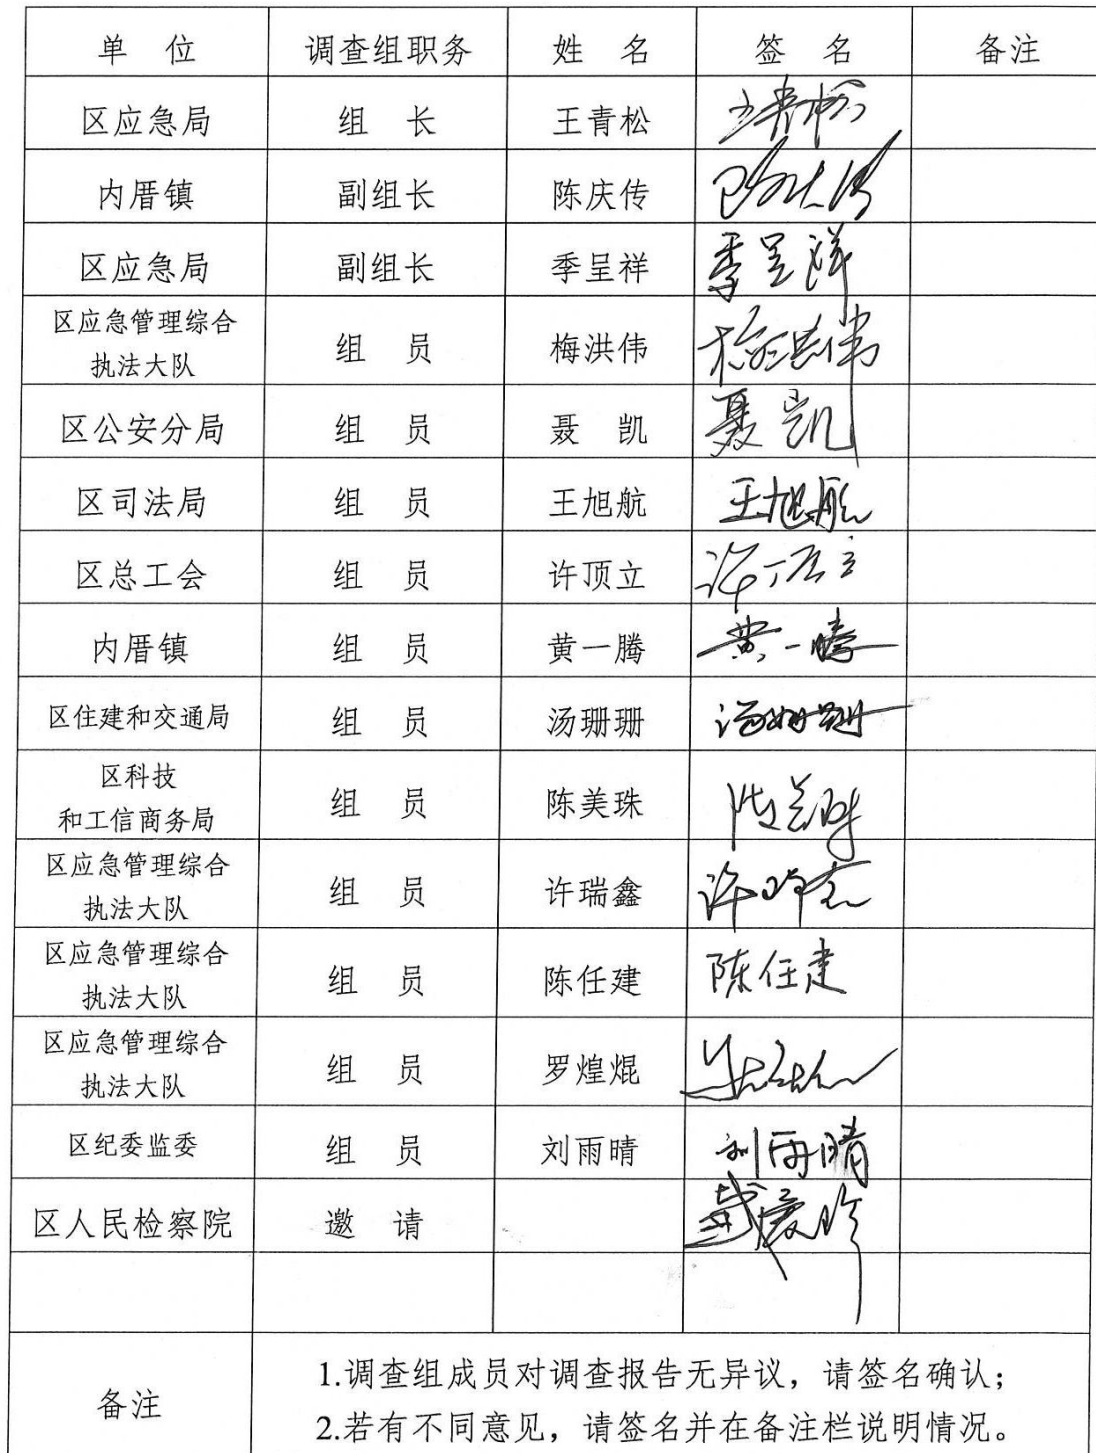 单 位 调查组职务 姓 名 签 名 备注
区应急局 组 长 王青松 王青松
内厝镇 副组长 陈庆传 陈庆传
区应急局 副组长 季呈祥 季呈祥
区应急管理综合
执法大队 组 员 梅洪伟 梅洪伟
区公安分局 组 员 聂 凯 聂凯
区司法局 组 员 王旭航 王旭航
区总工会 组 员 许顶立 许顶立
内厝镇 组 员 黄一腾 黄一腾
区住建和交通局 组 员 汤珊珊 汤珊珊
区科技
和工信商务局 组 员 陈美珠 陈美珠
区应急管理综合
执法大队 组 员 许瑞鑫 许瑞鑫
区应急管理综合
执法大队 组 员 陈任建 陈任建
区应急管理综合
执法大队 组 员 罗煌焜
区纪委监委 组 员 刘雨晴 刘雨晴
区人民检察院 邀 请
备注
1.调查组成员对调查报告无异议，请签名确认；
2.若有不同意见，请签名并在备注栏说明情况。